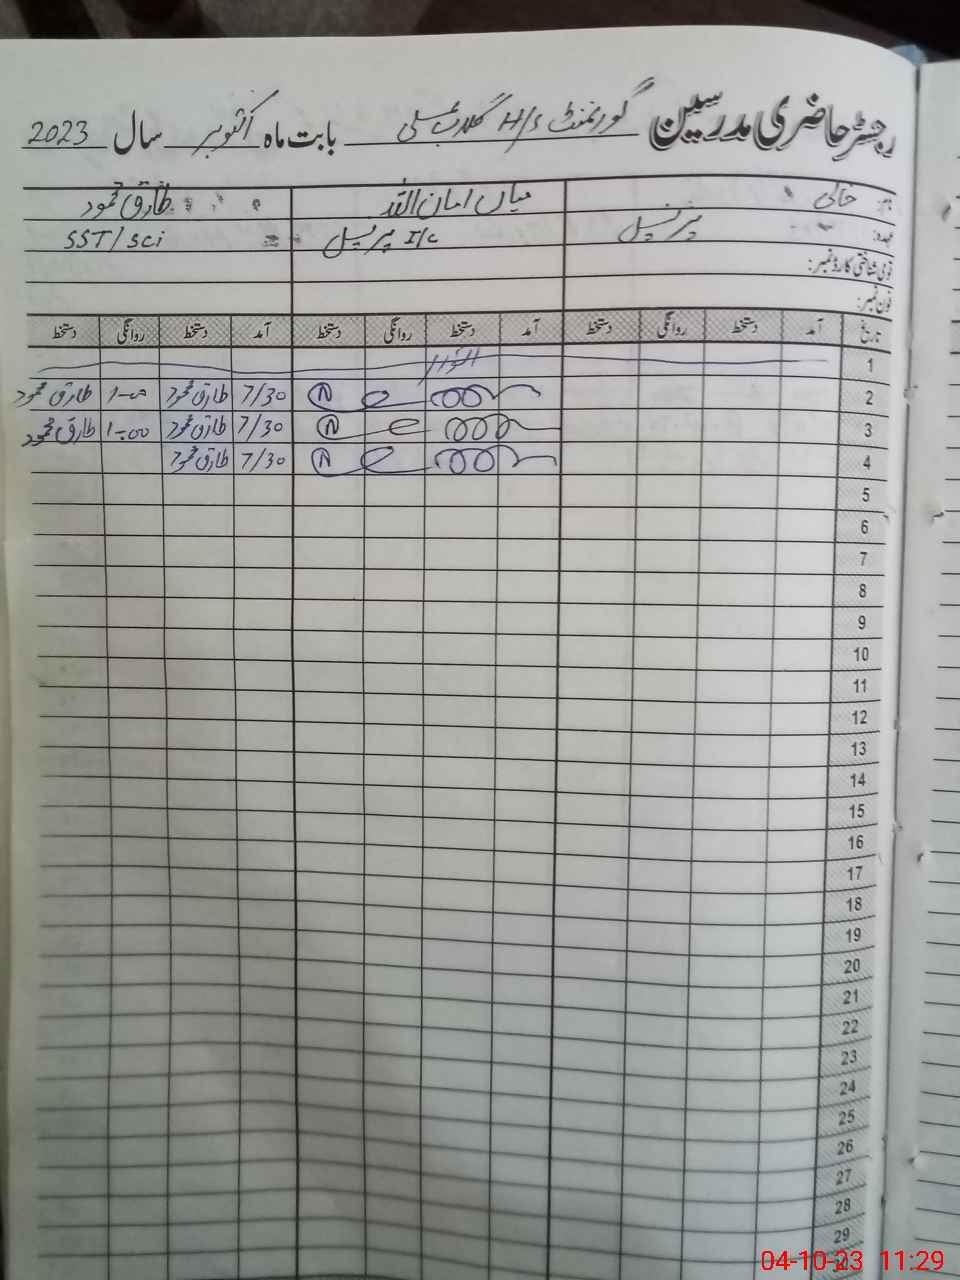 رجسٹر حاضری مدرسین گورنمنٹ H/S گلاب علی بابت ماہ اکتوبر سال 2023
نام: خالی میاں امان اللہ طارق محمود
عہدہ: پرنسپل I/C پرنسپل SST/Sci
قومی شناختی کارڈ نمبر:
فون نمبر:
تاریخ آمد دستخط روانگی دستخط آمد دستخط روانگی دستخط آمد دستخط روانگی دستخط
1 اتوار
2 7/30 طارق محمود 1-00 طارق محمود
3 7/30 طارق محمود 1-00 طارق محمود
4 7/30 طارق محمود
5
6
7
8
9
10
11
12
13
14
15
16
17
18
19
20
21
22
23
24
25
26
27
28
29
30
04-10-23 11:29